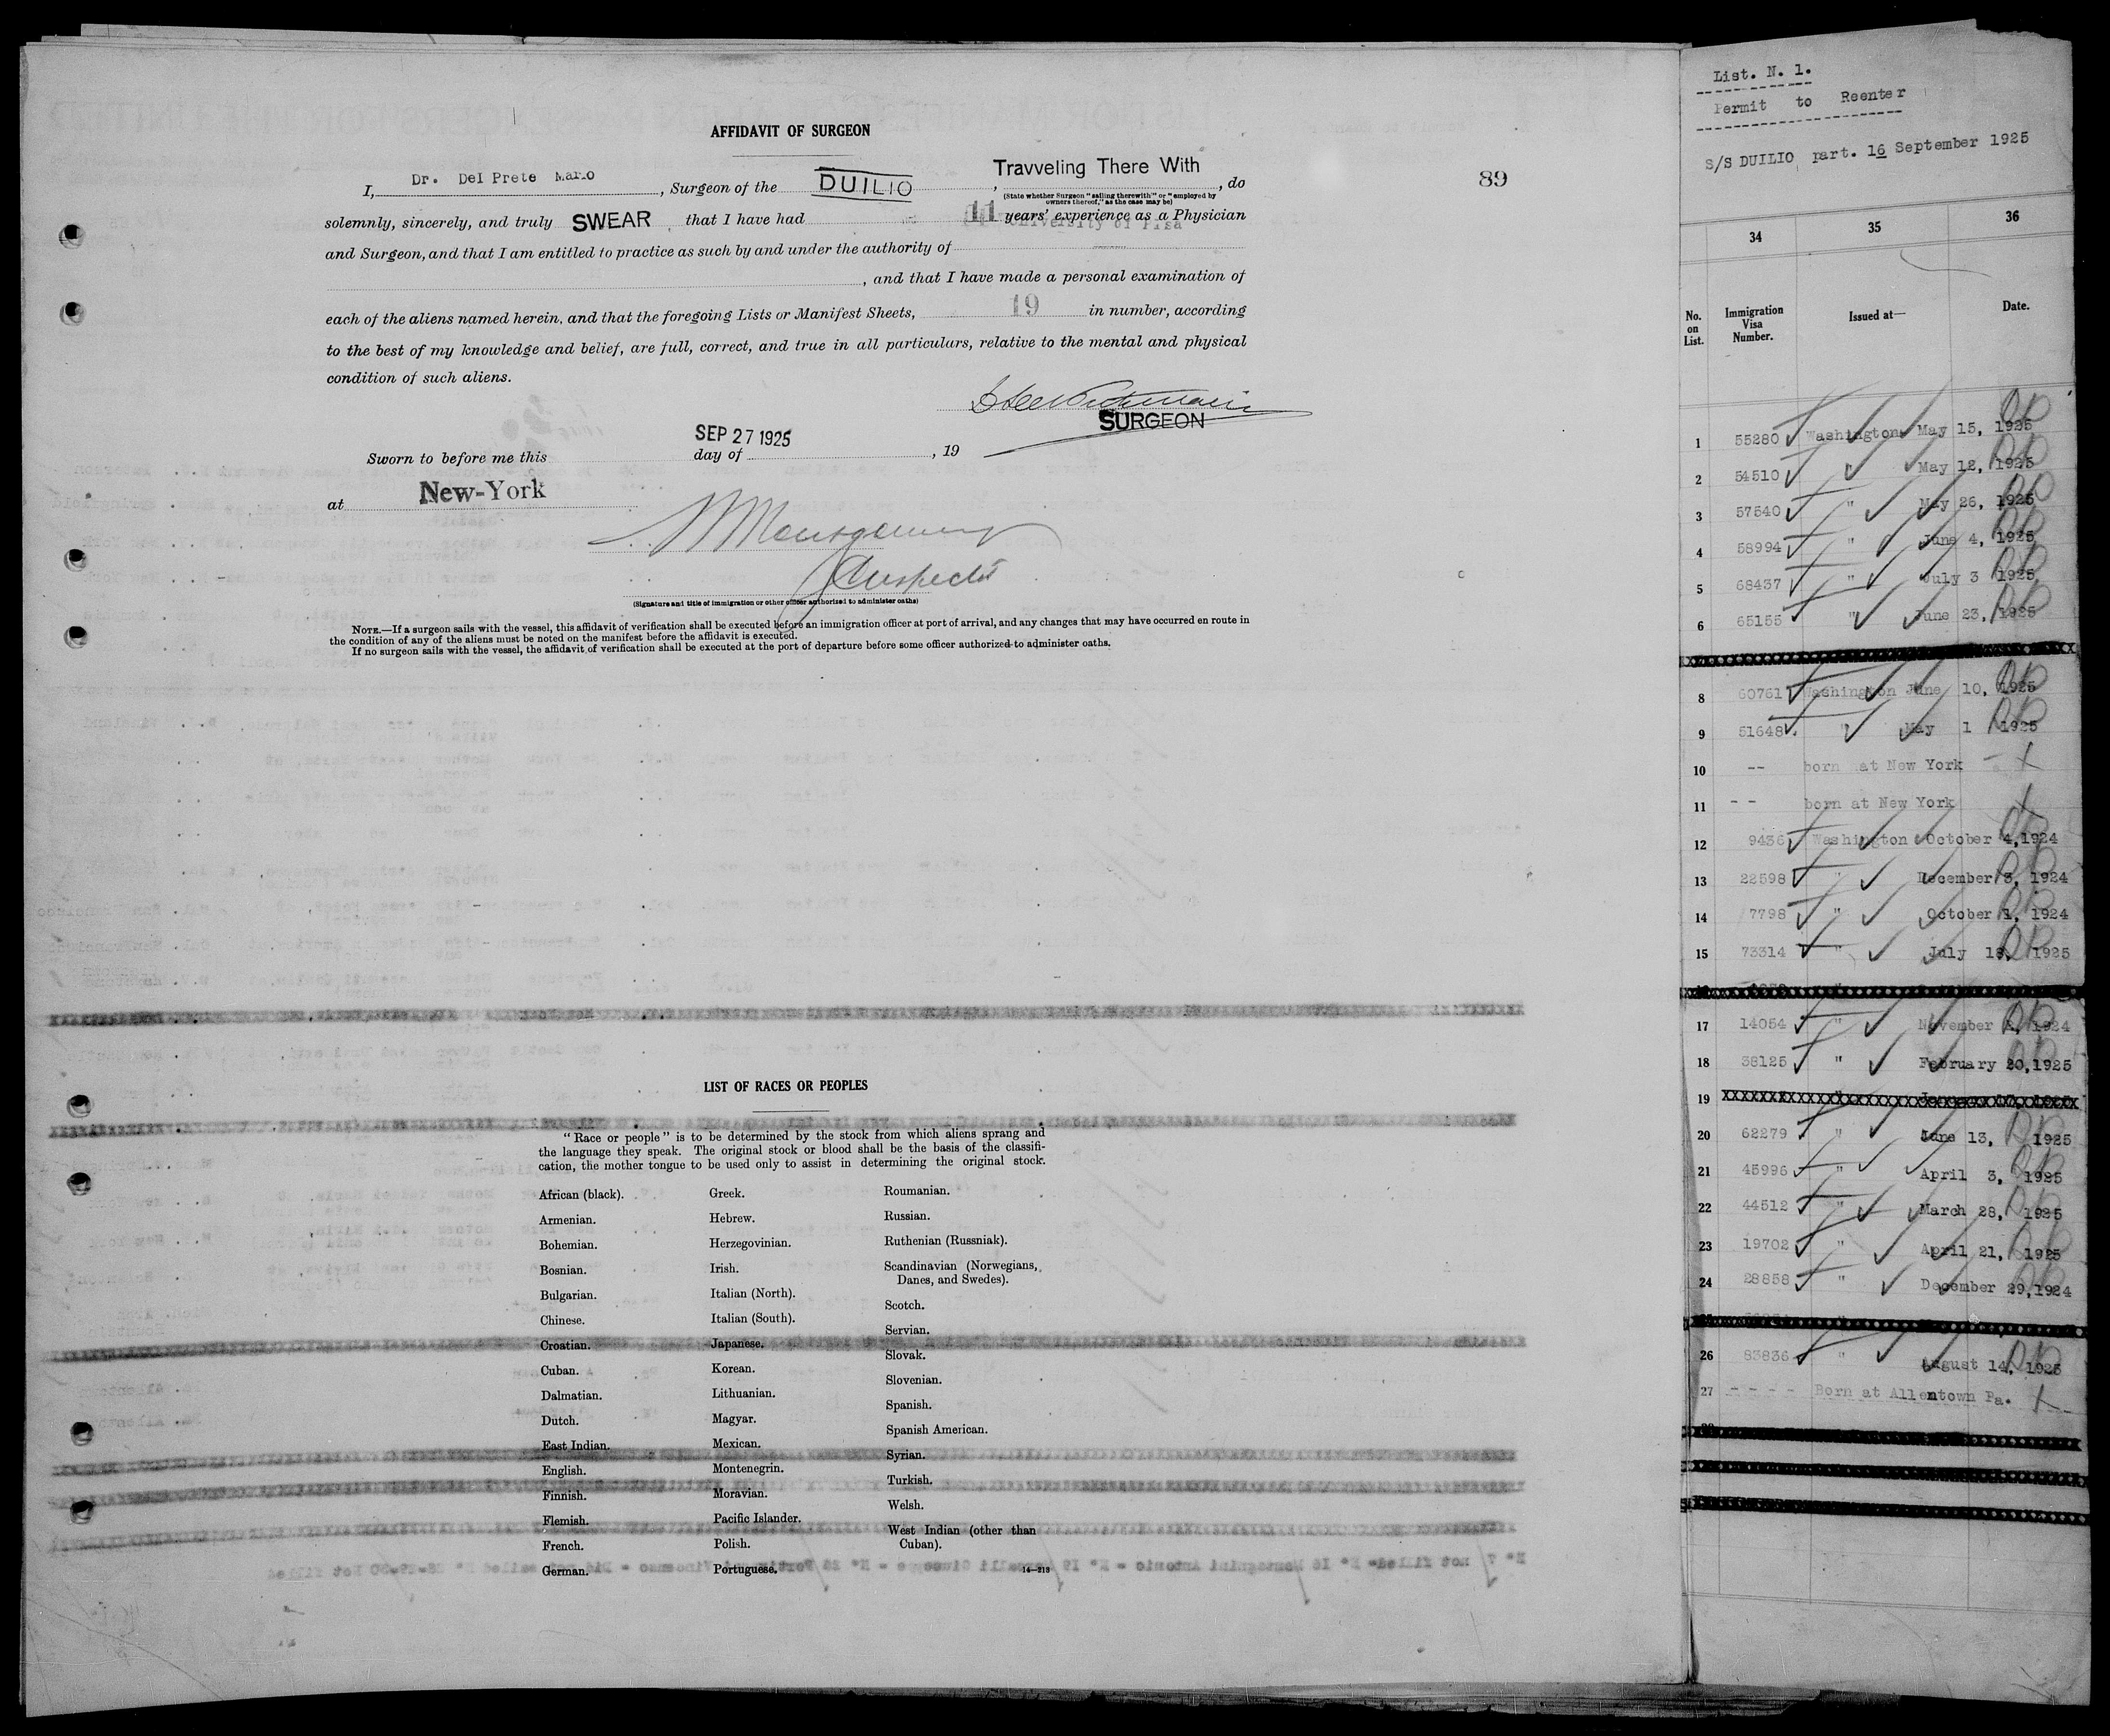 AFFIDAVIT OF SURGEON
I, Dr. Del Prete Mario, Surgeon of the DUILIO, Travveling There With, do
(State whether Surgeon "sailing therewith" or "employed by
owners thereof," as the case may be)
solemnly, sincerely, and truly SWEAR, that I have had 11 years' experience as a Physician
University of Pisa
and Surgeon, and that I am entitled to practice as such by and under the authority of
, and that I have made a personal examination of
each of the aliens named herein, and that the foregoing Lists or Manifest Sheets, 19 in number, according
to the best of my knowledge and belief, are full, correct, and true in all particulars, relative to the mental and physical
condition of such aliens.
SURGEON
SEP 27 1925
Sworn to before me this day of , 19
at New-York
Montgomery
Inspector
(Signature and title of immigration or other officer authorized to administer oaths)
NOTE.—If a surgeon sails with the vessel, this affidavit of verification shall be executed before an immigration officer at port of arrival, and any changes that may have occurred en route in
the condition of any of the aliens must be noted on the manifest before the affidavit is executed.
If no surgeon sails with the vessel, the affidavit of verification shall be executed at the port of departure before some officer authorized to administer oaths.
89
LIST OF RACES OR PEOPLES
"Race or people" is to be determined by the stock from which aliens sprang and
the language they speak. The original stock or blood shall be the basis of the classifi-
cation, the mother tongue to be used only to assist in determining the original stock.
African (black).
Armenian.
Bohemian.
Bosnian.
Bulgarian.
Chinese.
Croatian.
Cuban.
Dalmatian.
Dutch.
East Indian.
English.
Finnish.
Flemish.
French.
German.
Greek.
Hebrew.
Herzegovinian.
Irish.
Italian (North).
Italian (South).
Japanese.
Korean.
Lithuanian.
Magyar.
Mexican.
Montenegrin.
Moravian.
Pacific Islander.
Polish.
Portuguese.
Roumanian.
Russian.
Ruthenian (Russniak).
Scandinavian (Norwegians,
Danes, and Swedes).
Scotch.
Servian.
Slovak.
Slovenian.
Spanish.
Spanish American.
Syrian.
Turkish.
Welsh.
West Indian (other than
Cuban).
14—213
List. N. 1.
Permit to Reenter
S/S DUILIO part. 16 September 1925
34 35 36
No. on List. Immigration Visa Number. Issued at— Date.
1 55280 Washington May 15, 1925
2 54510 May 12, 1925
3 57540 " May 26, 1925
4 58994 " June 4, 1925
5 68437 " July 3 1925
6 65155 " June 23, 1925
8 60761 Washington June 10, 1925
9 51648 " May 1 1925
10 -- born at New York
11 -- born at New York
12 9436 Washington October 4, 1924
13 22598 " December 3, 1924
14 7798 " October 1, 1924
15 73314 " July 18, 1925
17 14054 " November 1924
18 38125 " February 20, 1925
19
20 62279 " June 13, 1925
21 45996 " April 3, 1925
22 44512 " March 28, 1925
23 19702 " April 21, 1925
24 28858 " December 29, 1924
26 83836 " August 14, 1925
27 - - - - Born at Allentown Pa.